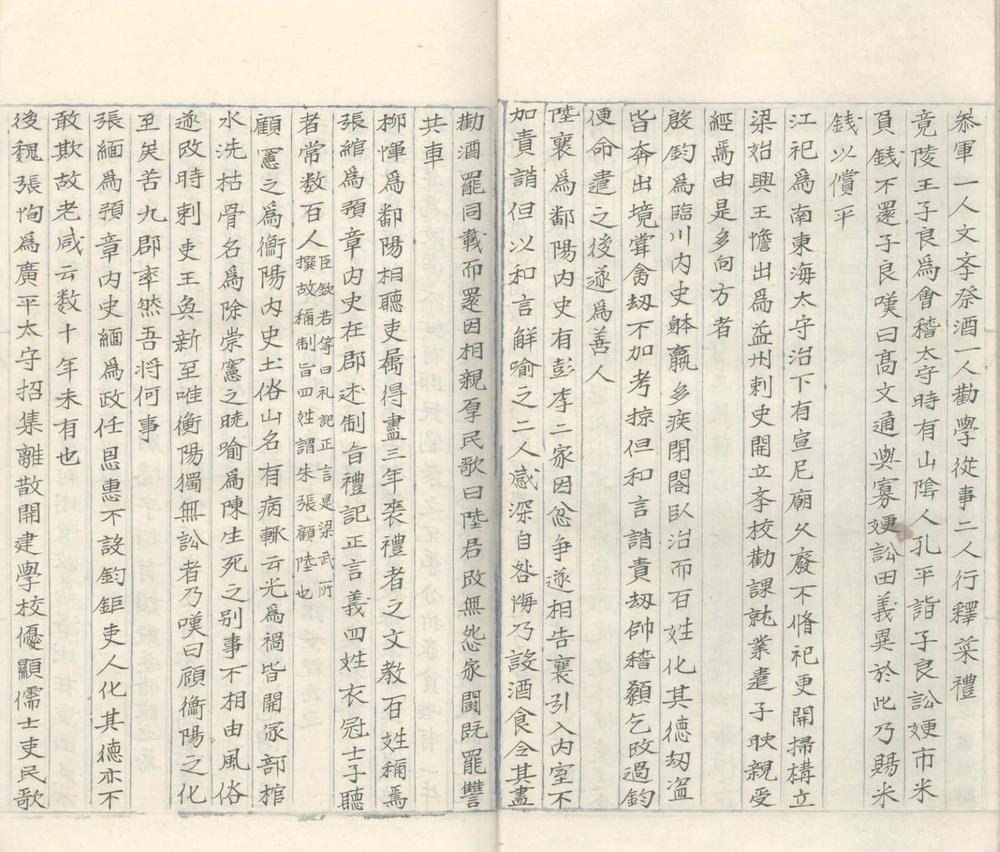 叅軍一人文孝祭酒一人勸學從事二人行釋菜禮
竟陵王子良爲會稽太守時有山隂人孔平詣子良訟㛐市米
負錢不還子良嘆曰髙文通與寡㛐訟田義異於此乃賜米
錢以償平
江祀爲南東海太守治下有宣尼廟久廢不脩祀更開掃構立
梁始興王憺出爲益州刺史開立孝校勸課就業遣子映親受
經焉由是多向方者
殷鈞爲臨川内史躰羸多疾閉閤臥治而百姓化其德刼盜
皆奔出境甞禽刼不加考掠但和言誚責刼帥稽顙乞改過鈞
便命遣之後遂爲善人
陸襄爲鄱陽内史有彭李二家因忿争遂相告襄引入内室不
加責誚但以和言解喻之二人感深自咎悔乃設酒食令其盡
勸酒罷同載而還因相親厚民歌曰陸君政無怨家闘既罷讐
共車
柳惲爲鄱陽相聽吏屬得盡三年喪禮者之文教百姓稱焉
張綰爲預章内史在郡述制旨禮記正言義四姓衣冠士子聽
者常数百人臣欽若等曰礼記正言是梁武所撰故稱制旨四姓謂朱張顧陸也
顧憲之爲衡陽内史土俗山名有病輙云光爲禍皆開冢部棺
水洗枯骨名爲除祟憲之曉喻爲陳生死之别事不相由風俗
遂改時刺史王奐新至唯衡陽獨無訟者乃嘆曰顧衡陽之化
至矣苦九郡率然吾將何事
張緬爲預章内史緬爲政任恩惠不設鈎鉅吏人化其德亦不
敢欺故老咸云数十年未有也
後魏張恂爲廣平太守招集離散開建學校優顯儒士吏民歌